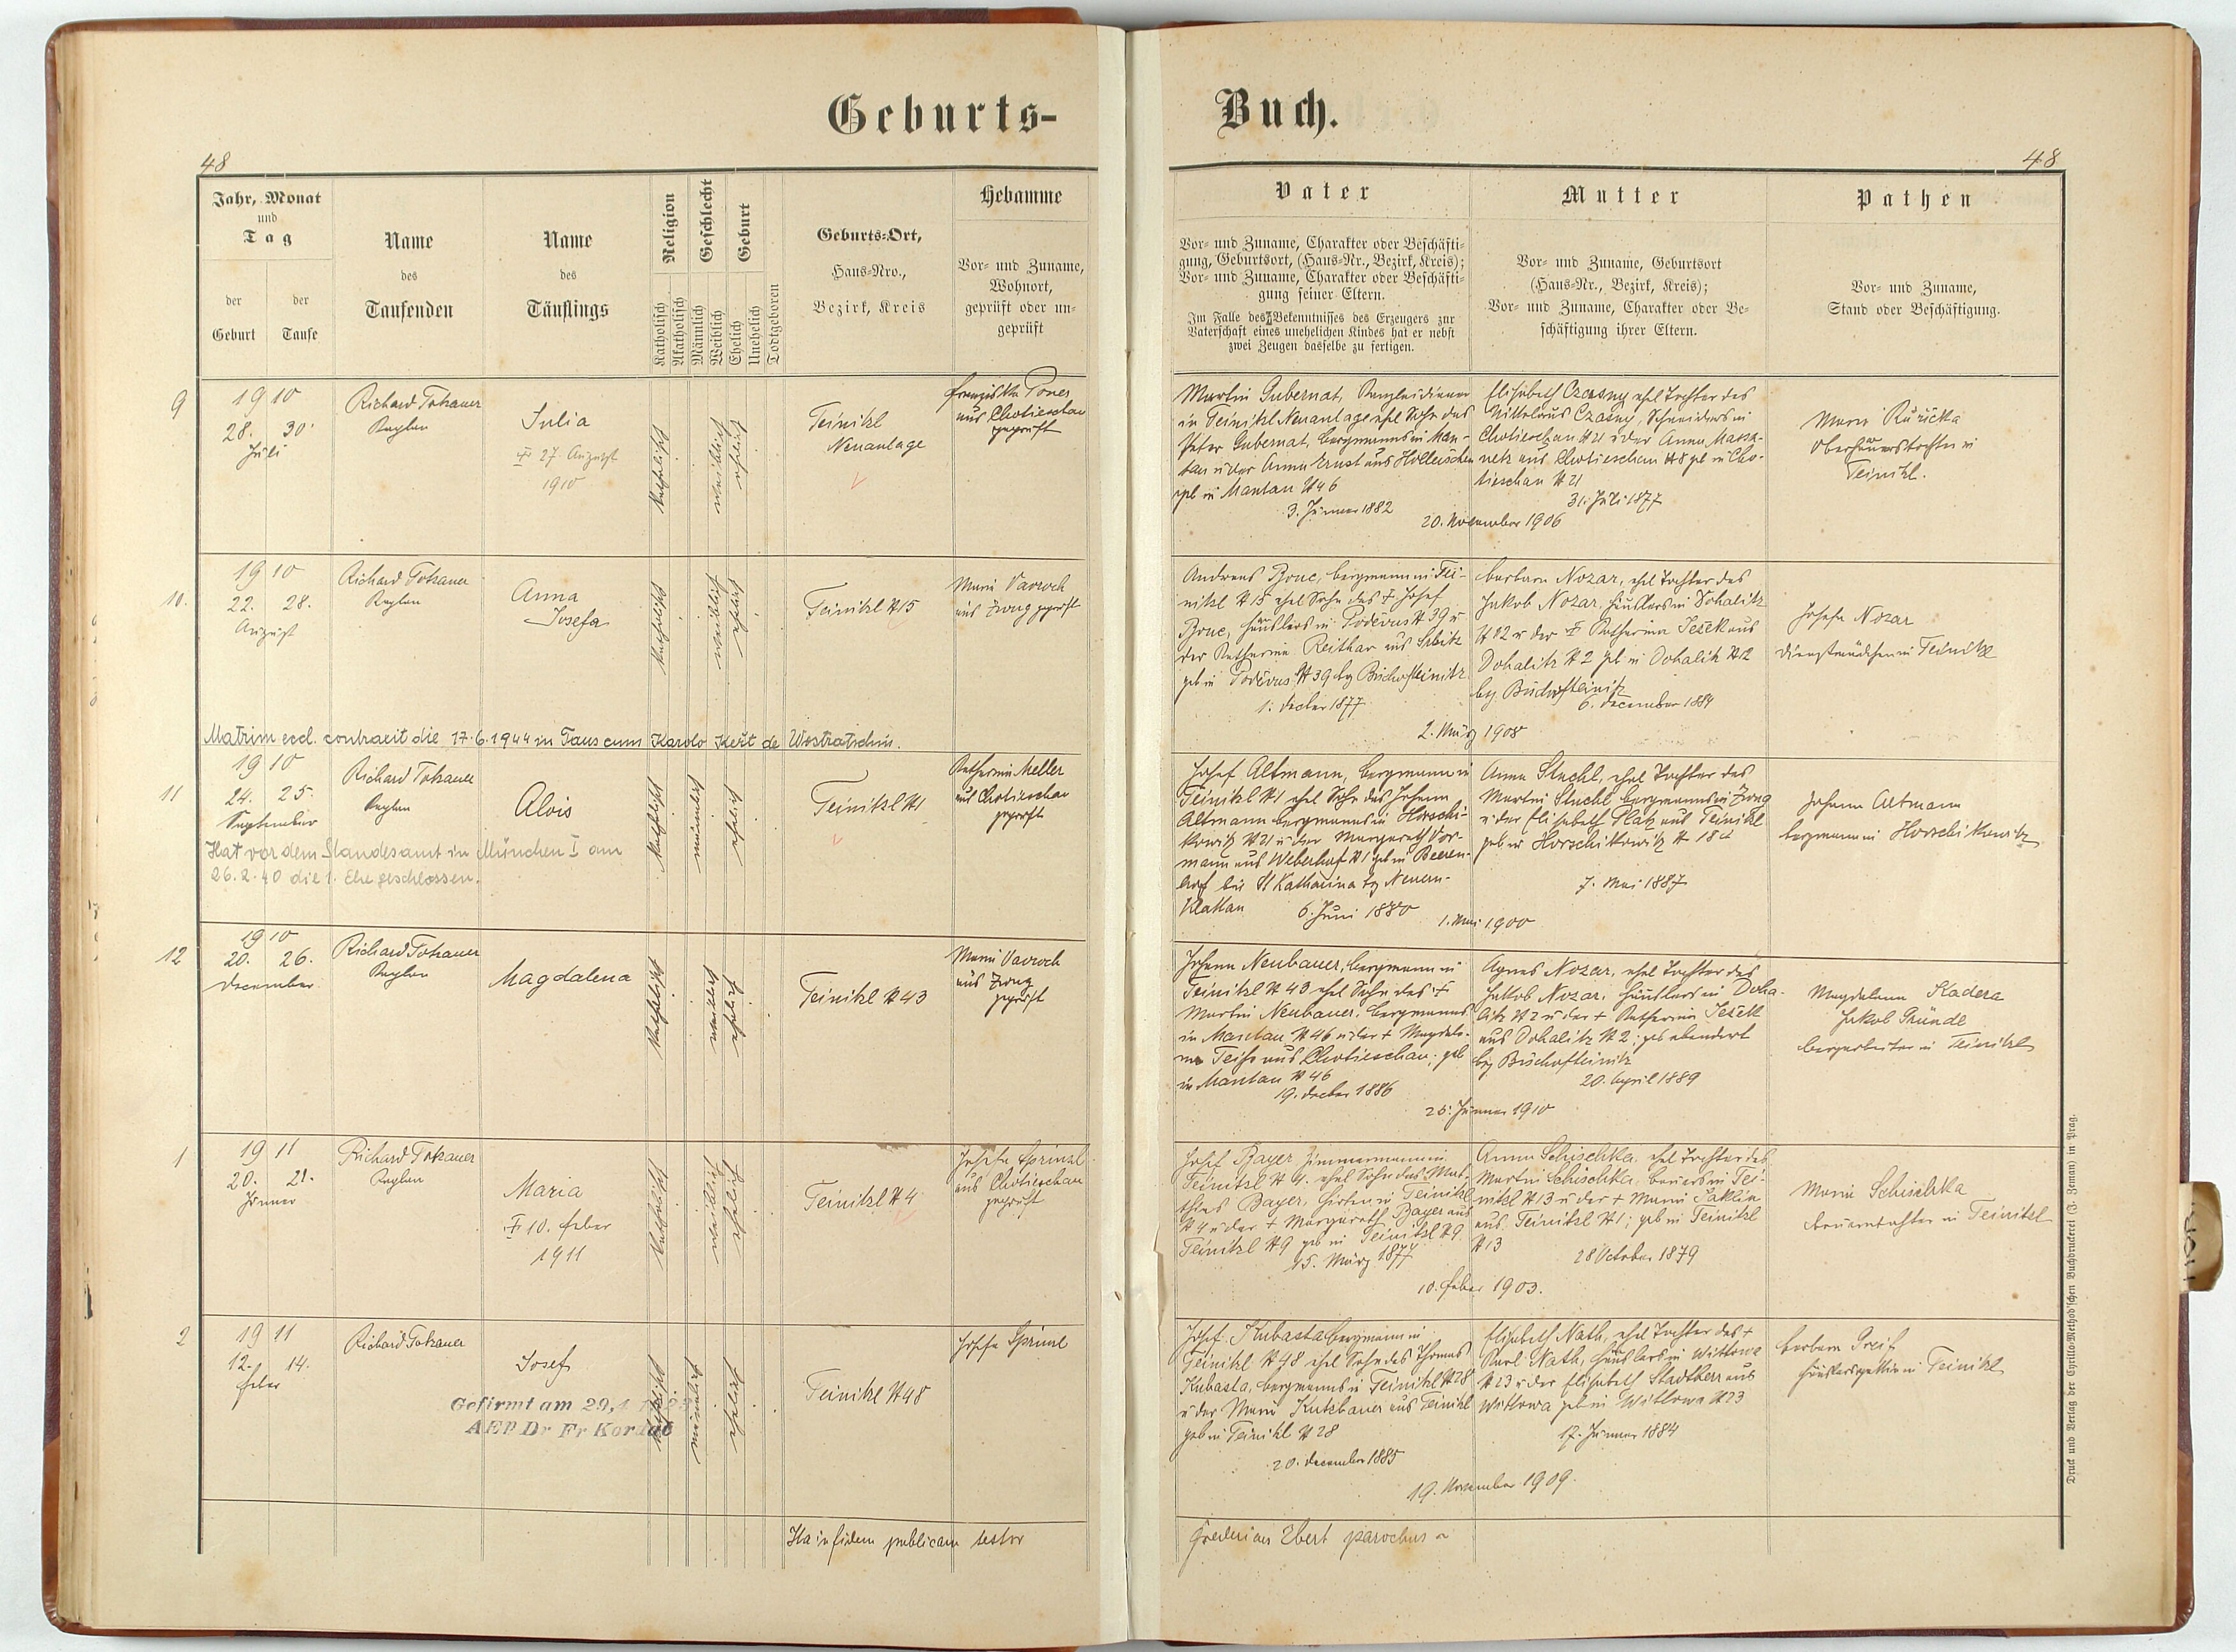 Geburts-
Buch.
48
48
Jahr, Monat
und
Tag
der
Geburt
der
Taufe
Name
des
Taufenden
Name
des
Täuflings
Religion
Katholisch
Akatholisch
Geschlecht
Männlich
Weiblich
Geburt
Ehelich
Unehelich
Todtgeboren
Geburts-Ort,
Haus-Nro.,
Bezirk, Kreis
Hebamme
Vor- und Zuname,
Wohnort,
geprüft oder un-
geprüft
Vater
Vor- und Zuname, Charakter oder Beschäfti-
gung, Geburtsort, (Haus-Nr., Bezirk, Kreis);
Vor- und Zuname, Charakter oder Beschäfti-
gung seiner Eltern.
Im Falle des Bekenntnisses des Erzeugers zur
Vaterschaft eines unehelichen Kindes hat er nebst
zwei Zeugen dasselbe zu fertigen.
Mutter
Vor- und Zuname, Geburtsort
(Haus-Nr., Bezirk, Kreis);
Vor- und Zuname, Charakter oder Be-
schäftigung ihrer Eltern.
Pathen
Vor- und Zuname,
Stand oder Beschäftigung.
9
1910
28. 30.
Juli
Richard Tokauer
Kaplan
Julia
✝ 27. August
1910
katholisch
weiblich
ehelich
Teinitzl
Neuanlage
Franziska
aus Chotieschau
geprüft
Martin Gubernat, Kanzleidiener
in Teinitzl Neuanlage ehel Sohn des
Peter Gubernat, Bergmanns in Man-
tau u der Anna Ernst aus Holleischen
geb in Mantau N 46
3. Jänner 1882
Elisabeth Czasny ehel Tochter des
Nikolaus Czasny, Schneiders in
Chotieschau N 21 u der Anna Massa-
netz aus Chotieschau N 8 geb in Cho-
tieschau N 21
31. Juli 1877
20. November 1906
Marie Ruzička
Oberhäuerstochter in
Teinitzl.
10.
1910
22. 28.
August
Richard Tokauer
Kaplan
Anna
Josefa
katholisch
weiblich
ehelich
Teinitzl N 15
Marie Vavroch
aus Zwug geprüft
Andreas Bouc, Bergmann in Tei-
nitzl N 15 ehel Sohn des ✝ Josef
Bouc, Häuslers in Poděvus N 39 u
der Katharina Reithar aus
geb in Poděvus N 39 bz Bischofteinitz
1. Decber 1877
Barbara Nozar, ehel Tochter des
Jakob Nozar, Häuslers in Dohalitz
N 22 u der ✝ Katharina Tešek aus
Dohalitz N 2 geb in Dohalitz N 2
bz. Bischofteinitz
6. December 1884
2. März 1908
Josefa Nozar
Dienstmädchen in Teinitzl
Matrim eccl. contraxit die 17.6.1944 in Taus cum Karolo Kešt de Wostratschin.
11
1910
24. 25.
September
Richard Tokauer
Kaplan
Alois
katholisch
männlich
ehelich
Teinitzl N 1
Katharina Meller
aus Chotieschau
geprüft
Hat vor dem Standesamt in München I am
26.2.40 die 1. Ehe geschlossen.
Josef Altmann, Bergmann in
Teinitzl N 1 ehel Sohn des Johann
Altmann Bergmanns in Horschi-
kowitz N 21 u der Margareth Vor-
mann aus Weberhof N 1 geb in Beeren-
dorf bei St Katharina bz Neuern-
Klattau
6. Juni 1880
Anna Stuchl, ehel Tochter des
Martin Stuchl Bergmanns in Zwug
u der Elisabeth Platz aus Teinitzl
geb in Horschikowitz N 18
7. Mai 1887
1. Mai 1900
Johann Altmann
Bergmann in Horschikowitz
12
1910
20. 26.
December
Richard Tokauer
Kaplan
Magdalena
katholisch
weiblich
ehelich
Teinitzl N 43
Marie Vavroch
aus Zwug
geprüft
Johann Neubauer, Bergmann in
Teinitzl N 43 ehel Sohn des ✝
Martin Neubauer, Bergmanns
in Mantau N 46 u der ✝ Magdale-
na aus Chotieschau; geb
in Mantau N 46
19. Decber 1886
Agnes Nozar, ehel Tochter des
Jakob Nozar, Häuslers in Doha-
litz N 2 u der ✝ Katharina Tešek
aus Dohalitz N 2; geb ebendort
bz Bischofteinitz
20. April 1889
25. Jänner 1910
Magdalena Kadera
Jakob Gründl
Bergarbeiter in Teinitzl
1
1911
20. 21.
Jänner
Richard Tokauer
Kaplan
Maria
✝ 10. Feber
1911
katholisch
weiblich
ehelich
Teinitzl N 4
Josefa Sprinzl
aus Chotieschau
geprüft
Josef Bayer Zimmermann in
Teinitzl N 4. ehel Sohn des Mat-
thias Bayer, Hirten in Teinitzl
N 4 u der ✝ Margareth Bayer aus
Teinitzl N 9 geb in Teinitzl N 9
15. März 1877
Anna Schischka, ehel Tochter des
Martin Schischka, Bauers in Tei-
nitzl N 13 u der ✝ Maria
aus Teinitzl N 1; geb in Teinitzl
N 13
28 October 1879
10. Feber 1903.
Marie Schischka
Bauerntochter in Teinitzl
2
1911
12. 14.
Feber
Richard Tokauer
Josef
Gefirmt am 29.4.
AEP Dr Fr Kordač
katholisch
männlich
ehelich
Teinitzl N 48
Josefa Sprinzl
Josef Kubasta Bergmann in
Teinitzl N 48 ehel Sohn des Thomas
Kubasta, Bergmanns in Teinitzl N 28
u der Marie Kutzbauer aus Teinitzl
geb in Teinitzl N 28
20. December 1885
Elisabeth Nath, ehel Tochter des ✝
Karl Nath, Häuslers in Wittowa
N 23 u der Elisabeth Stadtherr aus
Wittowa geb in Wittowa N 23
17. Jänner 1884
19. November 1909.
Barbara Greif
Häuslersgattin in Teinitzl
Ita in fidem publicam testor
Fredericus Ebert parochus
Druck und Verlag der Cyrillo-Method'schen Buchdruckerei (J. Zeman) in Prag.